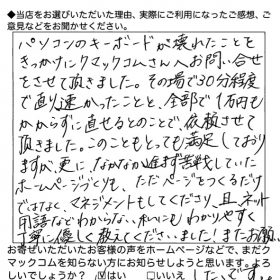 ◆当店をお選びいただいた理由、実際にご利用になったご感想、ご
意見などをお聞かせください。
パソコンのキーボードが壊れたことを
きっかけにクマックコムさんへお問い合せ
をさせて頂きました。その場で30分程度
で直り速かったことと、全部で1万円も
かからずに直せるとのことで、依頼させて
頂きました。このこともとても満足しており
ますが、更に、なかなか進まず苦戦していた
ホームページづくりも、ただページをつくるだけ
ではなく、マネジメントもしてくださり、且、ネット
用語などわからない私にもわかりやすく
丁寧に優しく教えてくださいました！またお願
お寄せいただいたお客様の声をホームページなどで、まだク
マックコムを知らない方にお知らせしようと思います。
しいでしょうか？ ☑はい □いいえ したいです。